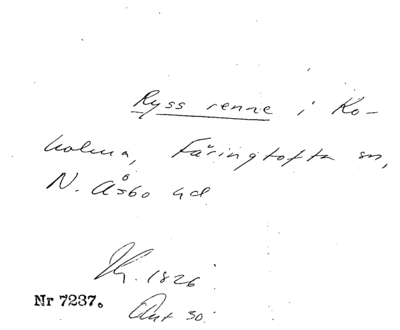 Ryss renne i Ko-
holma, Färingtofta sn,
N. Åsbo hd
1826
Nr 7237.